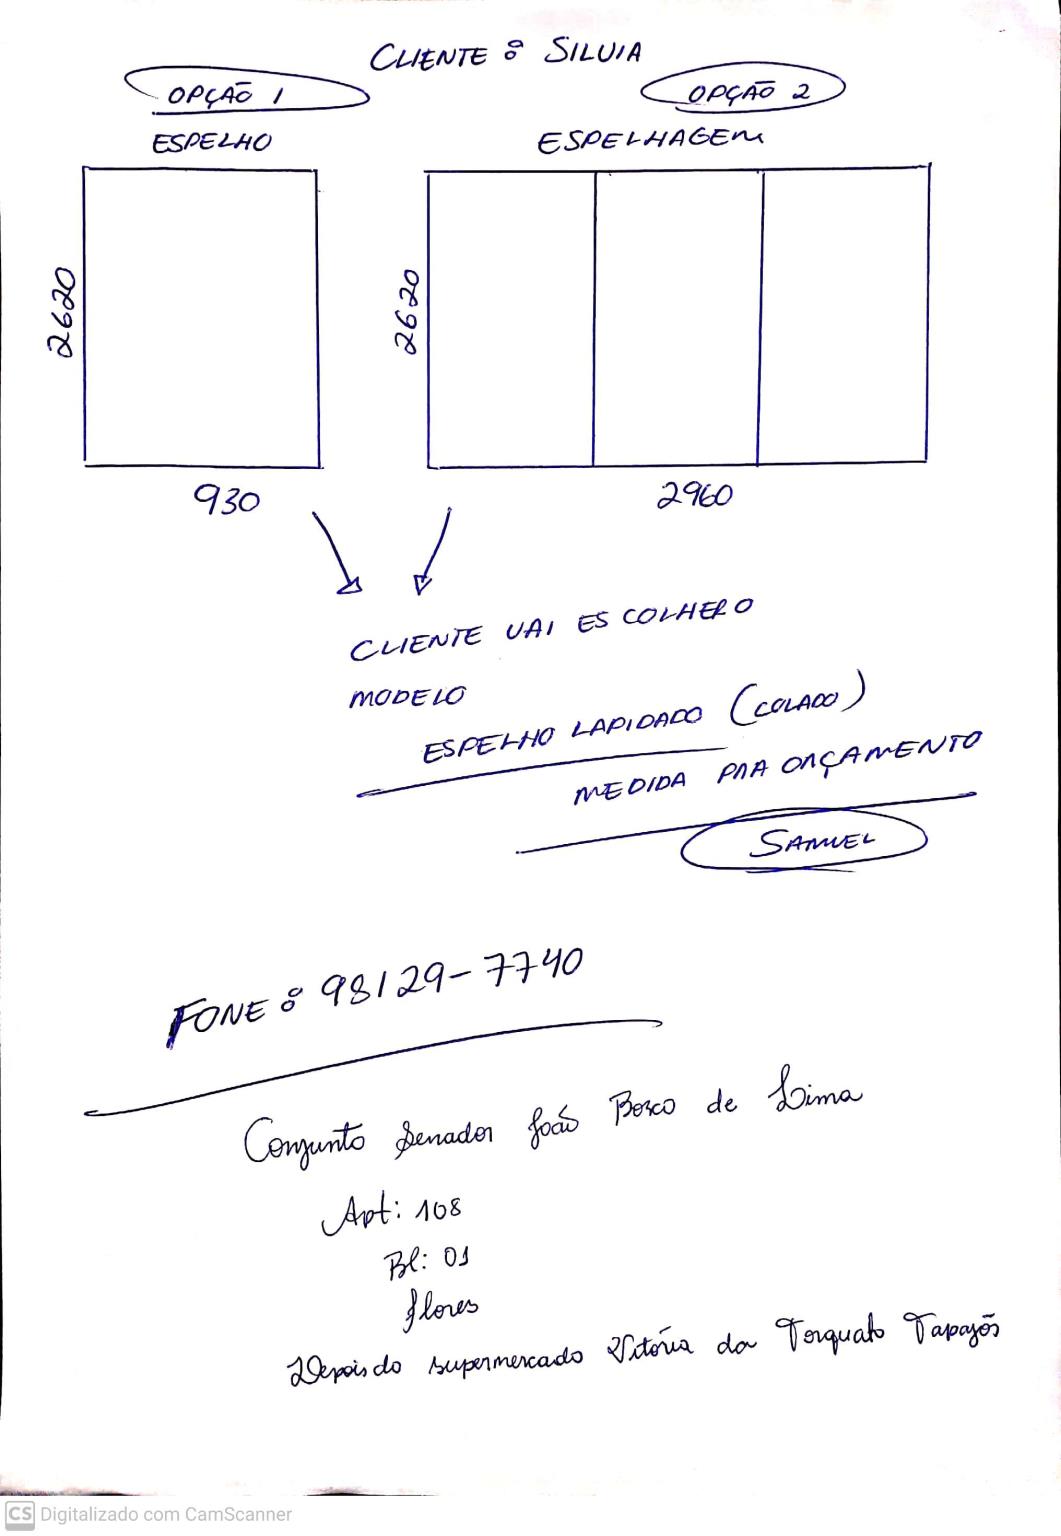 CLIENTE: SILVIA
OPÇÃO 1
OPÇÃO 2
ESPELHO
ESPELHAGEM
2620
2620
930
2960
CLIENTE VAI ESCOLHER O
MODELO
ESPELHO LAPIDADO (COLADO)
MEDIDA PRA ORÇAMENTO
SAMUEL
FONE: 98129-7740
Conjunto Senador João Bosco de Lima
Apt: 108
Bl: 01
flores
Depois do supermercado Vitória da Torquato Tapajós
CS Digitalizado com CamScanner